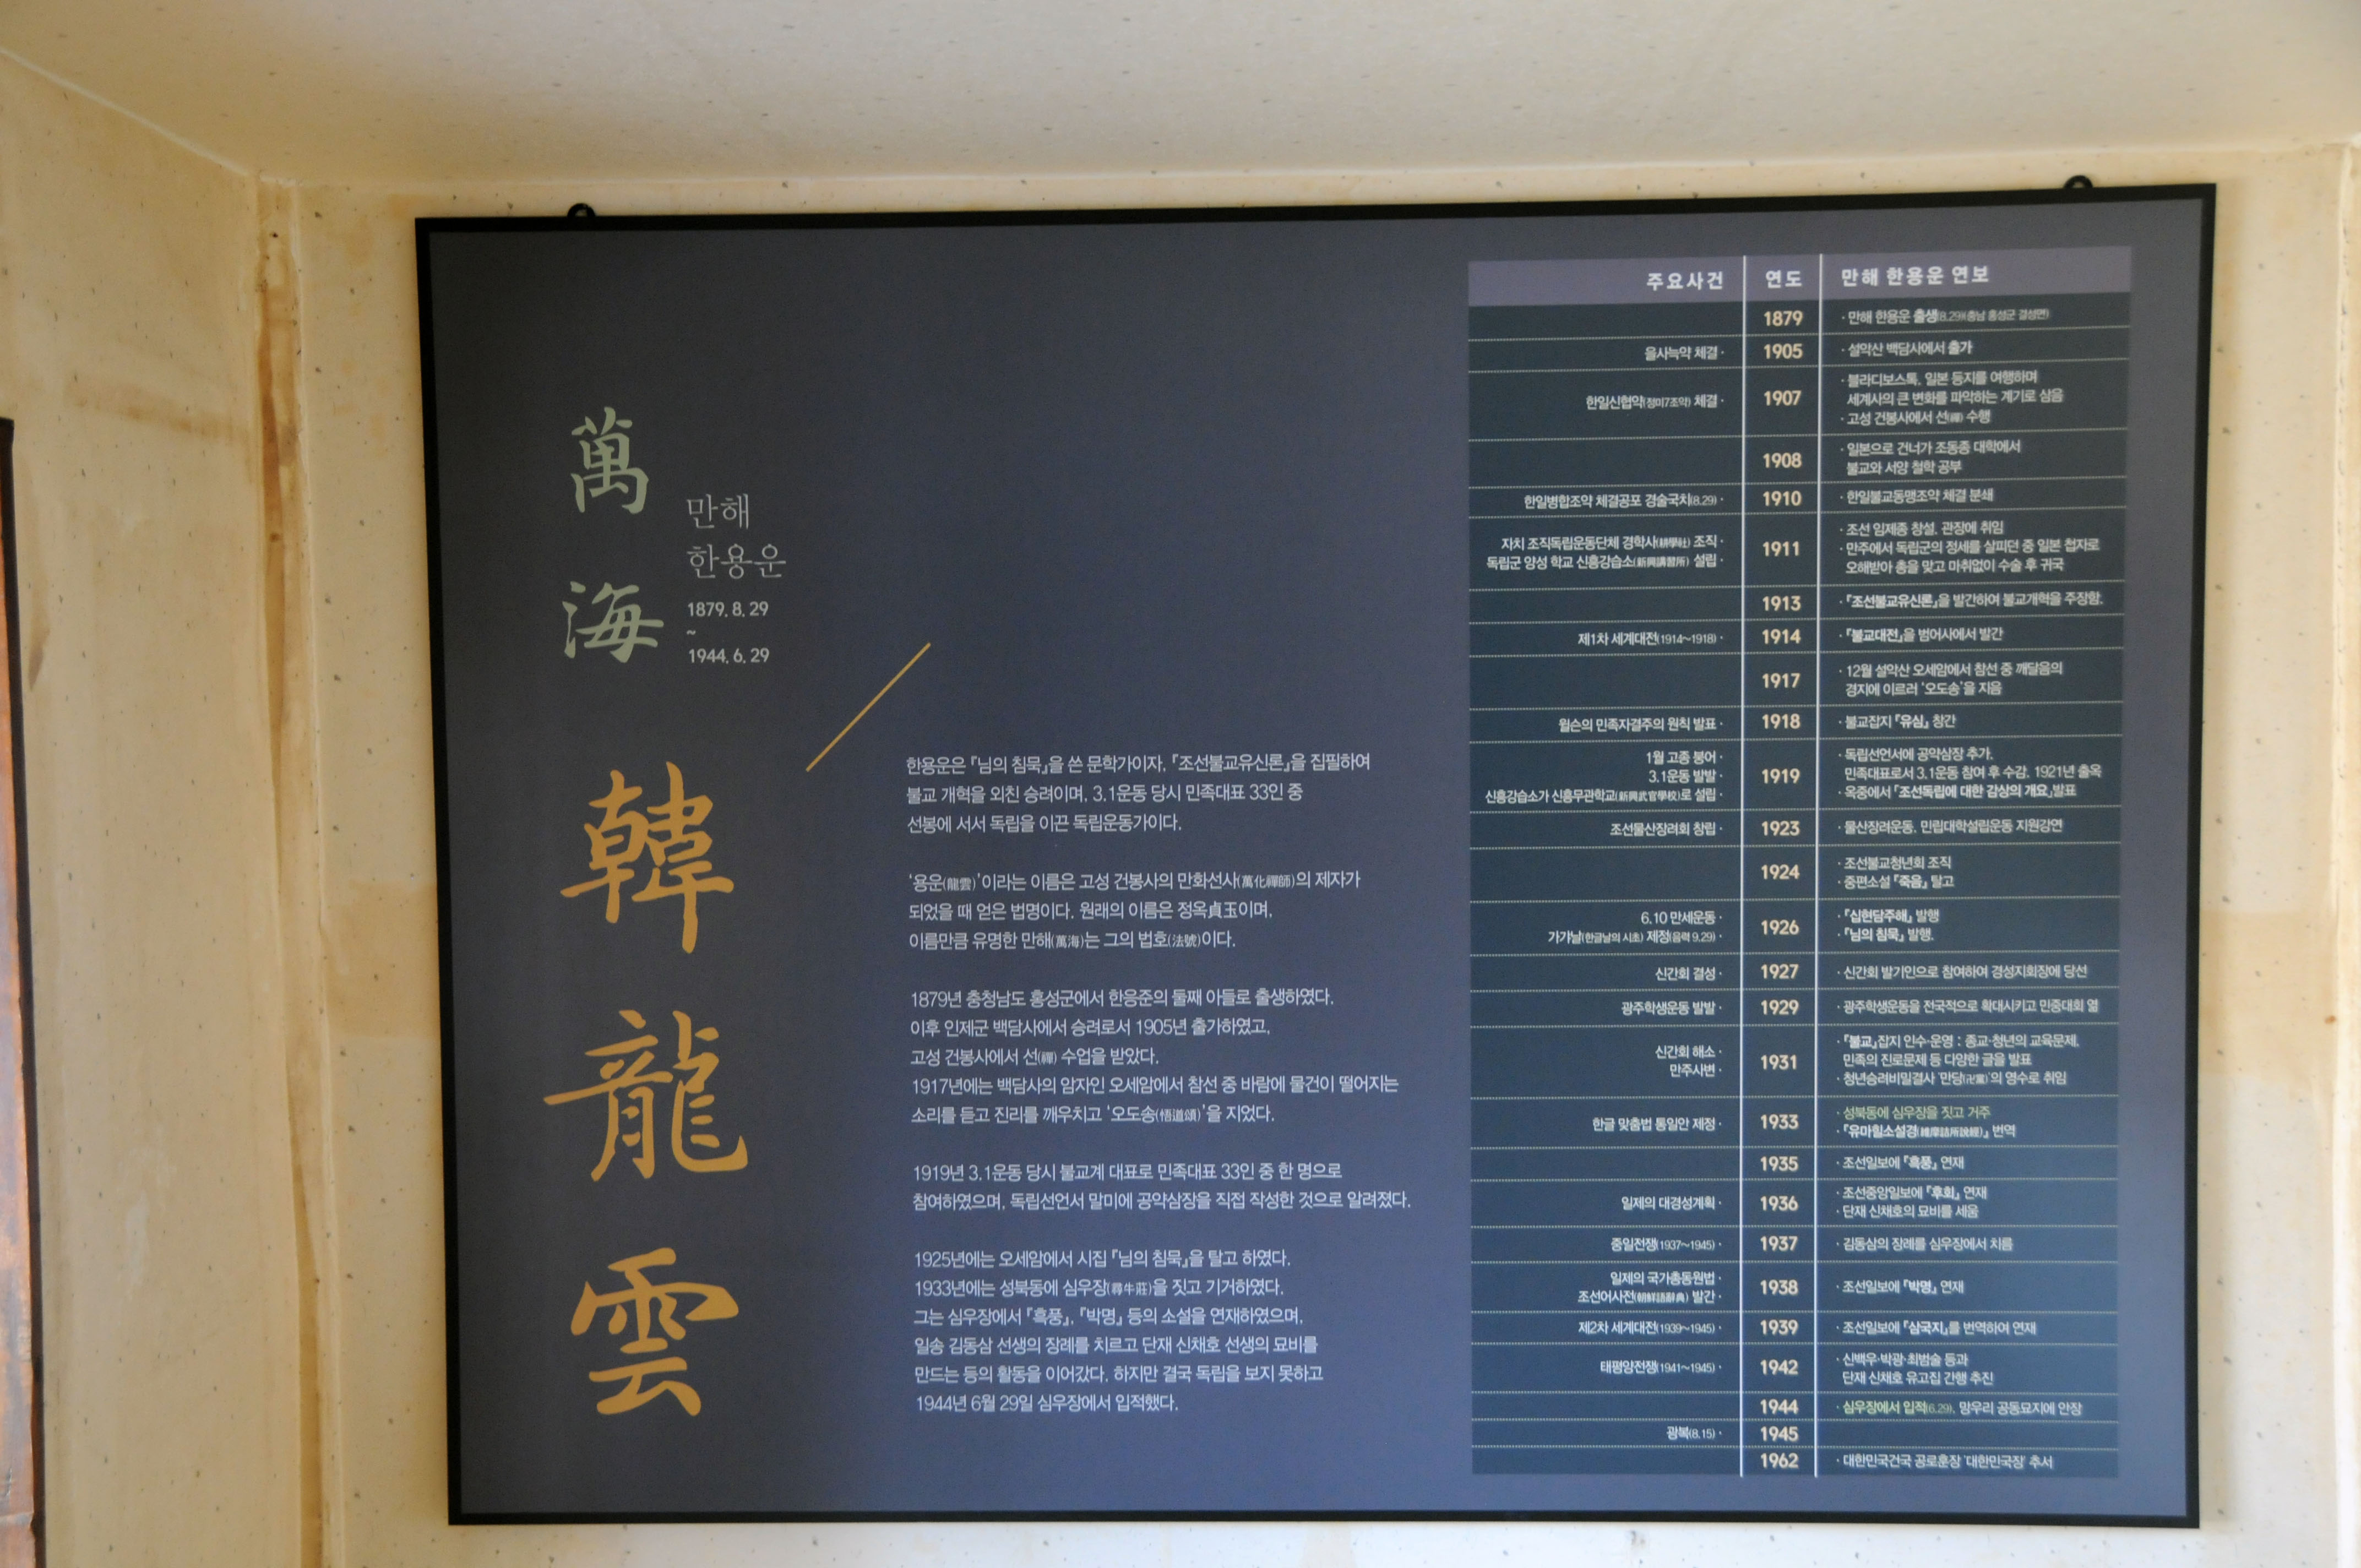 萬
海
韓
龍
雲
만해
한용운
1879. 8. 29
~
1944. 6. 29
한용운은 『님의 침묵』을 쓴 문학가이자, 『조선불교유신론』을 집필하여
불교 개혁을 외친 승려이며, 3.1운동 당시 민족대표 33인 중
선봉에 서서 독립을 이끈 독립운동가이다.
'용운(龍雲)'이라는 이름은 고성 건봉사의 만화선사(萬化禪師)의 제자가
되었을 때 얻은 법명이다. 원래의 이름은 정옥貞玉이며,
이름만큼 유명한 만해(萬海)는 그의 법호(法號)이다.
1879년 충청남도 홍성군에서 한응준의 둘째 아들로 출생하였다.
이후 인제군 백담사에서 승려로서 1905년 출가하였고,
고성 건봉사에서 선(禪) 수업을 받았다.
1917년에는 백담사의 암자인 오세암에서 참선 중 바람에 물건이 떨어지는
소리를 듣고 진리를 깨우치고 '오도송(悟道頌)'을 지었다.
1919년 3.1운동 당시 불교계 대표로 민족대표 33인 중 한 명으로
참여하였으며, 독립선언서 말미에 공약삼장을 직접 작성한 것으로 알려졌다.
1925년에는 오세암에서 시집 『님의 침묵』을 탈고 하였다.
1933년에는 성북동에 심우장(尋牛莊)을 짓고 기거하였다.
그는 심우장에서 『흑풍』, 『박명』 등의 소설을 연재하였으며,
일송 김동삼 선생의 장례를 치르고 단재 신채호 선생의 묘비를
만드는 등의 활동을 이어갔다. 하지만 결국 독립을 보지 못하고
1944년 6월 29일 심우장에서 입적했다.
주요사건 연도 만해 한용운 연보
1879 · 만해 한용운 출생(8.29)(충남 홍성군 결성면)
을사늑약 체결 · 1905 · 설악산 백담사에서 출가
한일신협약(정미7조약) 체결 · 1907 · 블라디보스톡, 일본 등지를 여행하며
세계사의 큰 변화를 파악하는 계기로 삼음
· 고성 건봉사에서 선(禪) 수행
1908 · 일본으로 건너가 조동종 대학에서
불교와 서양 철학 공부
한일병합조약 체결공포 경술국치(8.29) · 1910 · 한일불교동맹조약 체결 분쇄
자치 조직독립운동단체 경학사(耕學社) 조직 ·
독립군 양성 학교 신흥강습소(新興講習所) 설립 ·
1911
· 조선 임제종 창설, 관장에 취임
· 만주에서 독립군의 정세를 살피던 중 일본 첩자로
오해받아 총을 맞고 마취없이 수술 후 귀국
1913 · 『조선불교유신론』을 발간하여 불교개혁을 주장함.
제1차 세계대전(1914~1918) · 1914 · 『불교대전』을 범어사에서 발간
1917 · 12월 설악산 오세암에서 참선 중 깨달음의
경지에 이르러 '오도송'을 지음
윌슨의 민족자결주의 원칙 발표 · 1918 · 불교잡지 『유심』 창간
1월 고종 붕어 ·
3.1운동 발발 ·
신흥강습소가 신흥무관학교(新興武官學校)로 설립 ·
1919
· 독립선언서에 공약삼장 추가.
민족대표로서 3.1운동 참여 후 수감. 1921년 출옥
· 옥중에서 『조선독립에 대한 감상의 개요』발표
조선물산장려회 창립 · 1923 · 물산장려운동, 민립대학설립운동 지원강연
1924 · 조선불교청년회 조직
· 중편소설 『죽음』 탈고
6.10 만세운동 ·
가갸날(한글날의 시초) 제정(음력 9.29) ·
1926
· 『십현담주해』 발행
· 『님의 침묵』 발행.
신간회 결성 · 1927 · 신간회 발기인으로 참여하여 경성지회장에 당선
광주학생운동 발발 · 1929 · 광주학생운동을 전국적으로 확대시키고 민중대회 엶
신간회 해소 ·
만주사변 ·
1931
· 『불교』잡지 인수·운영 : 종교·청년의 교육문제,
민족의 진로문제 등 다양한 글을 발표
· 청년승려비밀결사 '만당(卍黨)'의 영수로 취임
한글 맞춤법 통일안 제정 · 1933 · 성북동에 심우장을 짓고 거주
· 『유마힐소설경(維摩詰所說經)』 번역
1935 · 조선일보에 『흑풍』 연재
일제의 대경성계획 · 1936 · 조선중앙일보에 『후회』 연재
· 단재 신채호의 묘비를 세움
중일전쟁(1937~1945) · 1937 · 김동삼의 장례를 심우장에서 치름
일제의 국가총동원법 ·
조선어사전(朝鮮語辭典) 발간 ·
1938 · 조선일보에 『박명』 연재
제2차 세계대전(1939~1945) · 1939 · 조선일보에 『삼국지』를 번역하여 연재
태평양전쟁(1941~1945) · 1942 · 신백우·박광·최범술 등과
단재 신채호 유고집 간행 추진
1944 · 심우장에서 입적(6.29), 망우리 공동묘지에 안장
광복(8.15) · 1945
1962 · 대한민국건국 공로훈장 '대한민국장' 추서